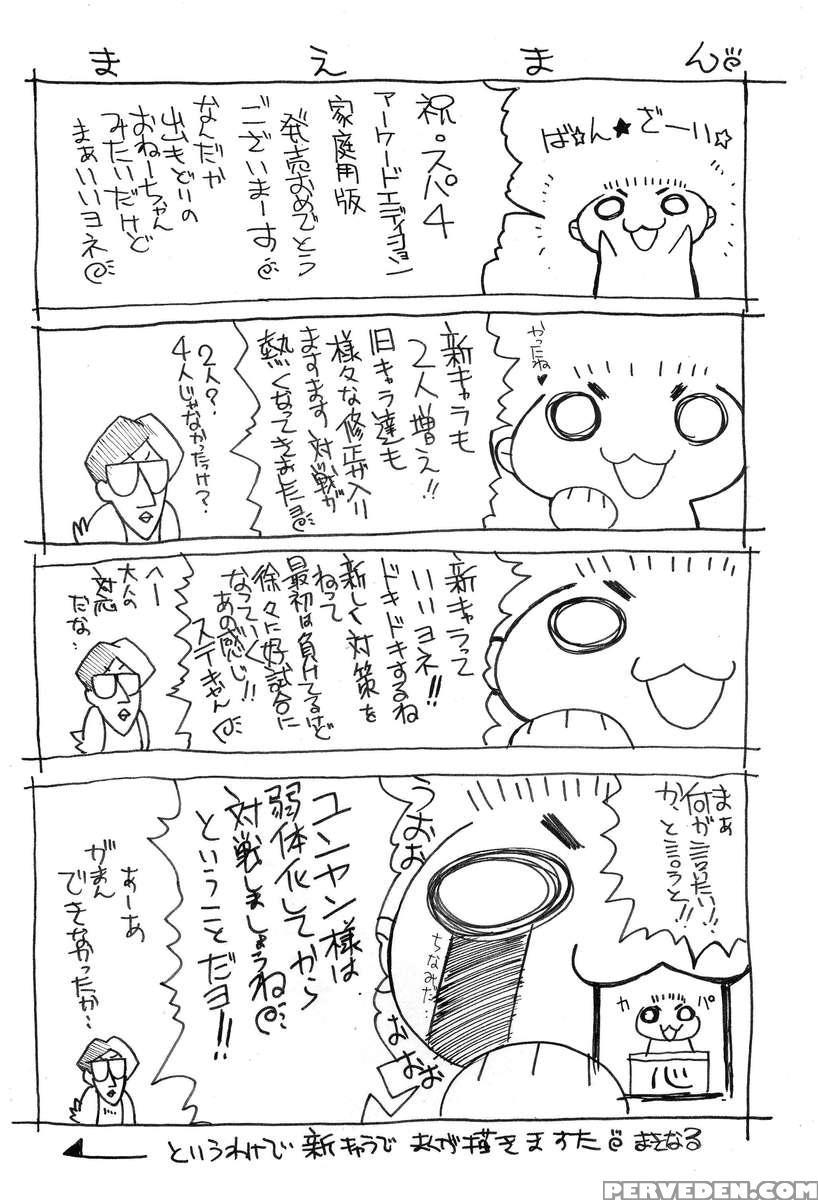 まえまん
ば☆ん★ざーい☆
祝。スパ4
アーケードエディション
家庭用版
発売おめでとう
ございまーす
なんだか
出もどりの
おねーちゃん
みたいだけど
まぁいいヨネ
かったね♥
新キャラも
2人増え!!
旧キャラ達も
様々な修正が入り
ますます対戦が
熱くなってきましたヨ
2人?
4人じゃなかったっけ?
新キャラって
いいヨネ!!
ドキドキするね
新しく対策を
ねって
最初は負けてるけど
徐々に好試合に
なっていく
あの感じ!!
ステキやん
へー
大人の
対応
だな…
まぁ
何が言いたい!!
か、と言うと!!
カパ
心
うおお
ちなみだ…
なおおお
ユンヤン様は
弱体化してから
対戦しましょうね
ということだヨー!!
あーあ
がまん
できなかったか…
というわけで 新キャラで まんが描きますた まさなる
PERVEDEN.COM